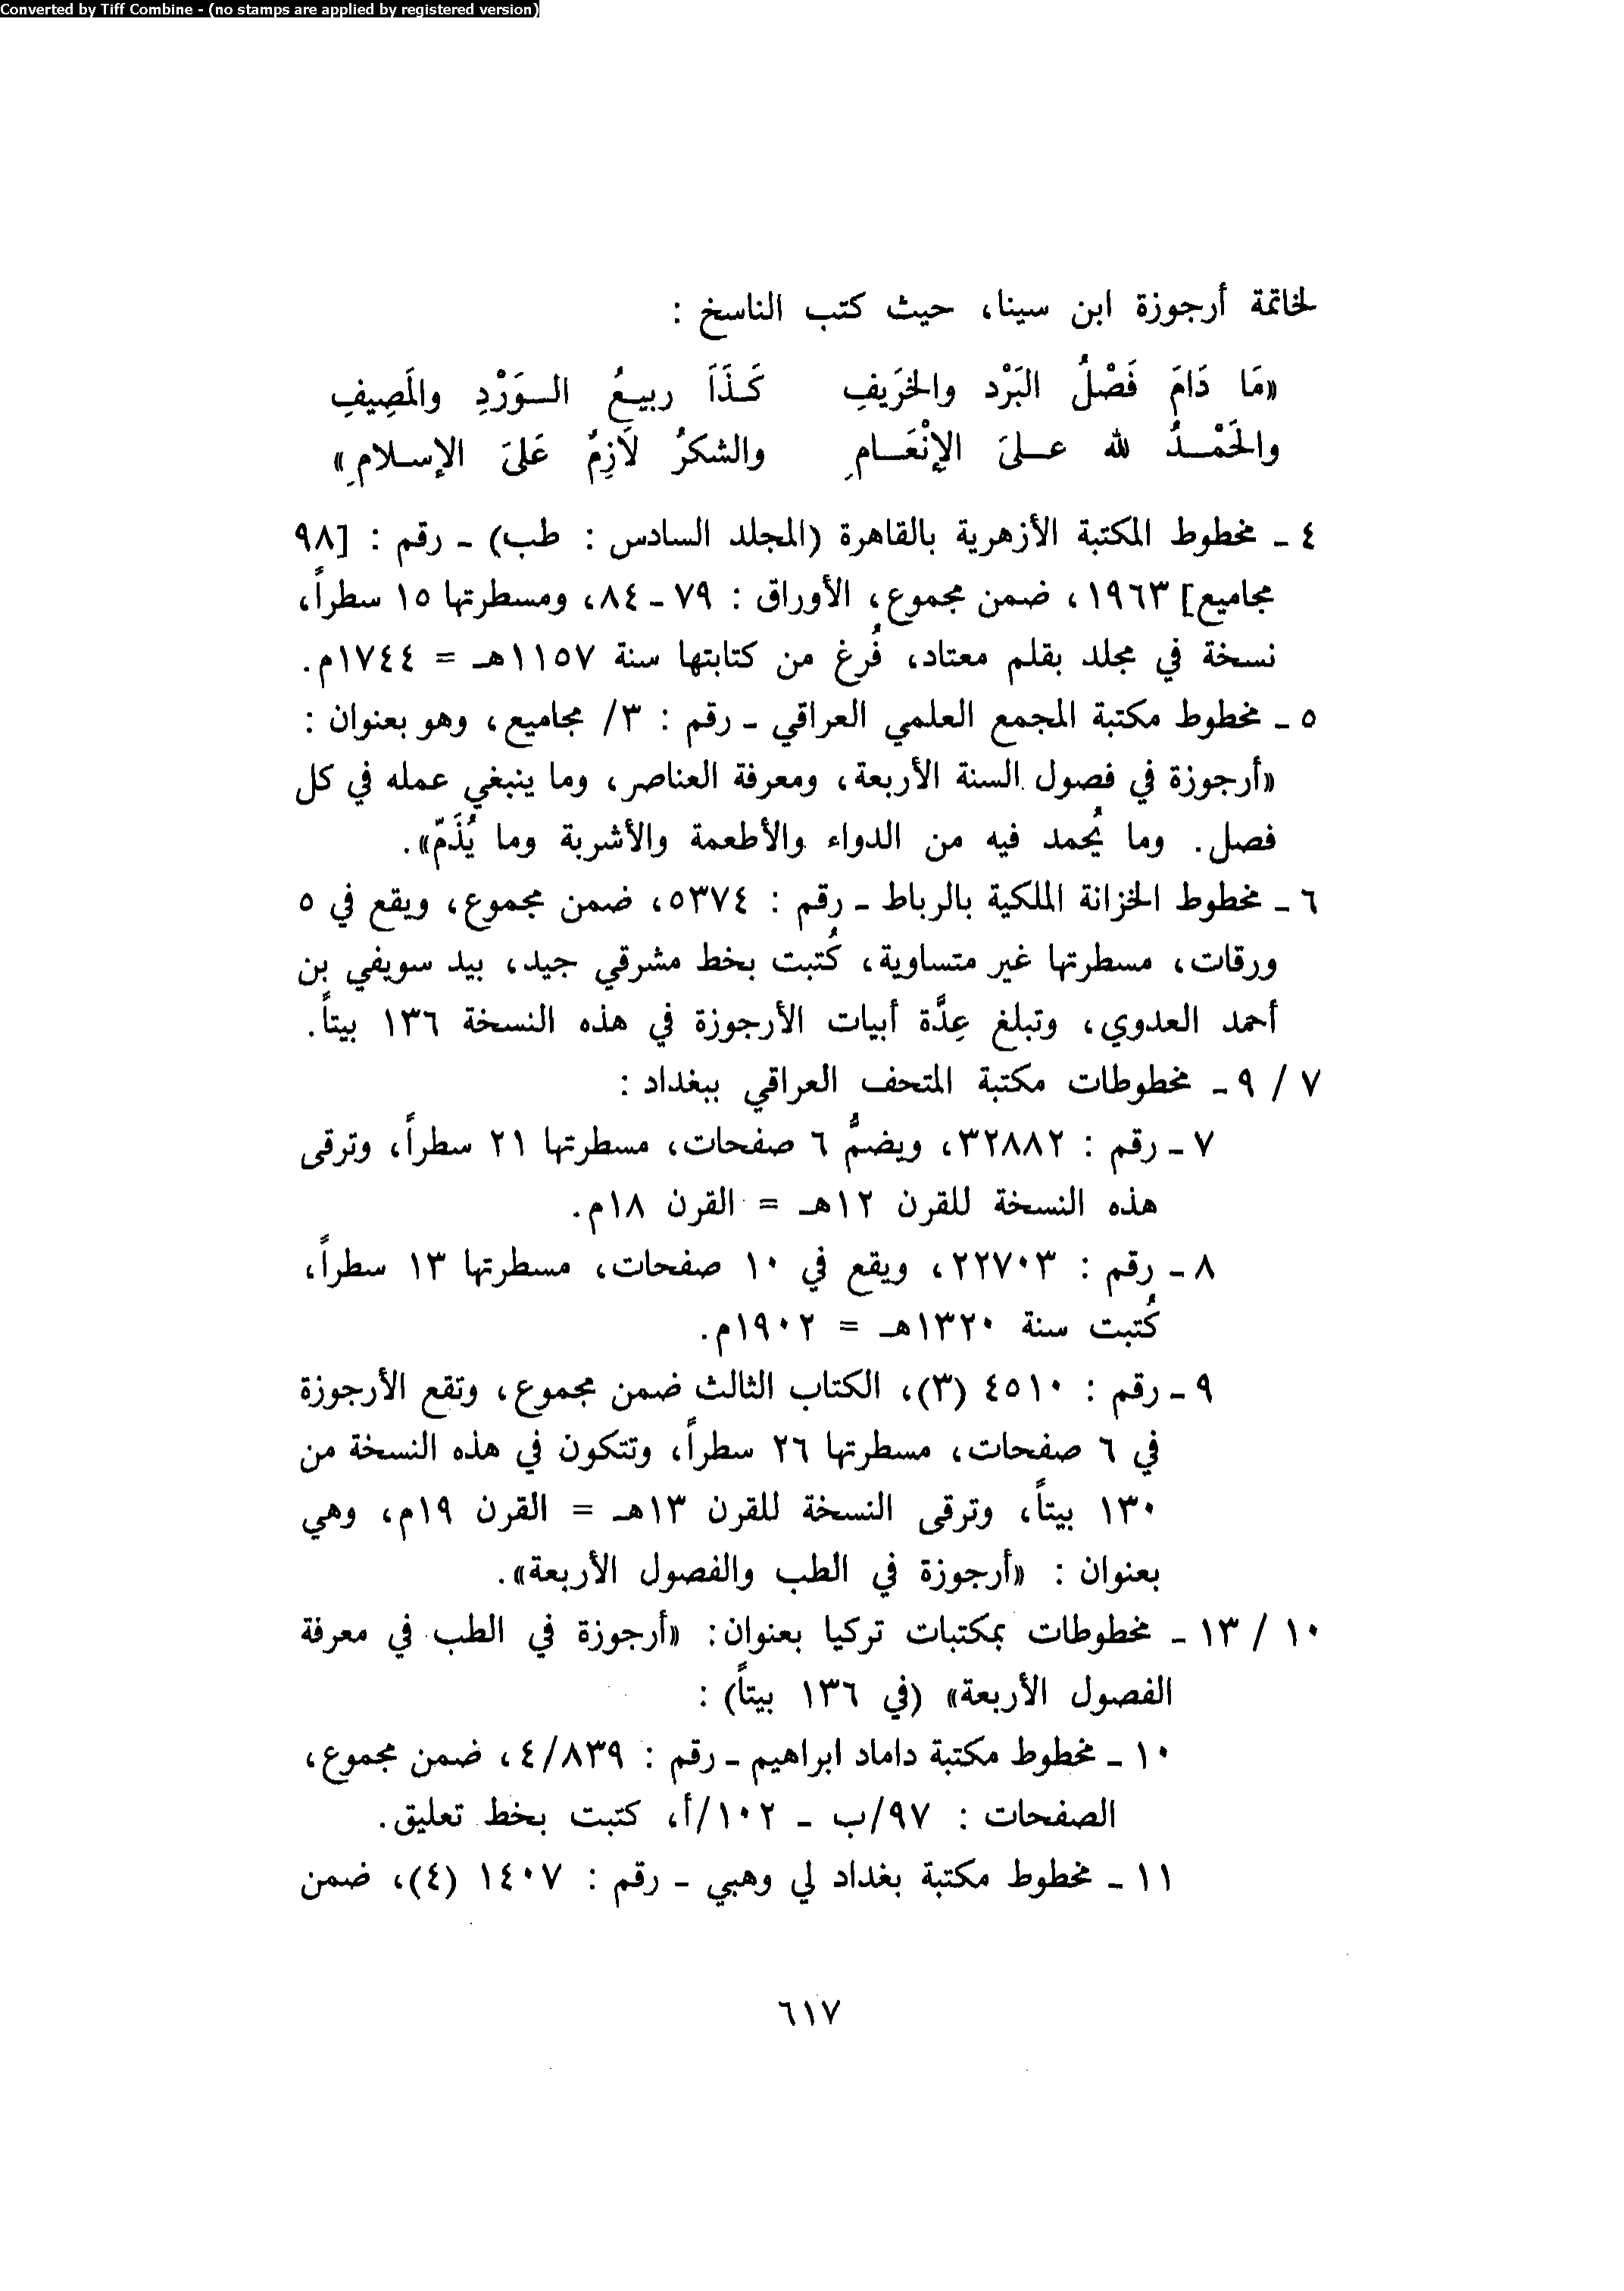 Converted by Tiff Combine - (no stamps are applied by registered version)
لخاتمة أرجوزة ابن سينا، حيث كتب الناسخ :
«مَا دَامَ فَصْلُ البَرْد والخَرَيفِ كَـذَاَ ربيـعُ الـوَرْدِ والمَصِيفِ
والحَمْـدُ لله عـلىَ الإنْعَـامِ والشكرُ لَازِمٌ عَلىَ الإسلامِ»
٤ - مخطوط المكتبة الأزهرية بالقاهرة (المجلد السادس : طب) - رقم : [٩٨
مجاميع] ١٩٦٣، ضمن مجموع، الأوراق : ٧٩ - ٨٤، ومسطرتها ١٥ سطراً،
نسخة في مجلد بقلم معتاد، فُرغ من كتابتها سنة ١١٥٧هـ = ١٧٤٤م.
٥ - مخطوط مكتبة المجمع العلمي العراقي - رقم : ٣/ مجاميع، وهو بعنوان :
«أرجوزة في فصول السنة الأربعة، ومعرفة العناصر، وما ينبغي عمله في كل
فصل. وما يُحمد فيه من الدواء والأطعمة والأشربة وما يُذَمّ».
٦ - مخطوط الخزانة الملكية بالرباط - رقم : ٥٣٧٤، ضمن مجموع، ويقع في ٥
ورقات، مسطرتها غير متساوية، كُتبت بخط مشرقي جيد، بيد سويفي بن
أحمد العدوي، وتبلغ عِدَّة أبيات الأرجوزة في هذه النسخة ١٣٦ بيتاً.
٧ / ٩ - مخطوطات مكتبة المتحف العراقي ببغداد :
٧ - رقم : ٣٢٨٨٢، ويضمُّ ٦ صفحات، مسطرتها ٢١ سطراً، وترقى
هذه النسخة للقرن ١٢هـ = القرن ١٨م.
٨ - رقم : ٢٢٧٠٣، ويقع في ١٠ صفحات، مسطرتها ١٣ سطراً،
كُتبت سنة ١٣٢٠هـ = ١٩٠٢م.
٩ - رقم : ٤٥١٠ (٣)، الكتاب الثالث ضمن مجموع، وتقع الأرجوزة
في ٦ صفحات، مسطرتها ٢٦ سطراً، وتتكون في هذه النسخة من
١٣٠ بيتاً، وترقى النسخة للقرن ١٣هـ = القرن ١٩م، وهي
بعنوان : «أرجوزة في الطب والفصول الأربعة».
١٠ / ١٣ - مخطوطات بمكتبات تركيا بعنوان: «أرجوزة في الطب في معرفة
الفصول الأربعة» (في ١٣٦ بيتاً) :
١٠ - مخطوط مكتبة داماد ابراهيم - رقم : ٤/٨٣٩، ضمن مجموع،
الصفحات : ٩٧/ب - ١٠٢/أ، كتبت بخط تعليق.
١١ - مخطوط مكتبة بغداد لي وهبي - رقم : ١٤٠٧ (٤)، ضمن
٦١٧